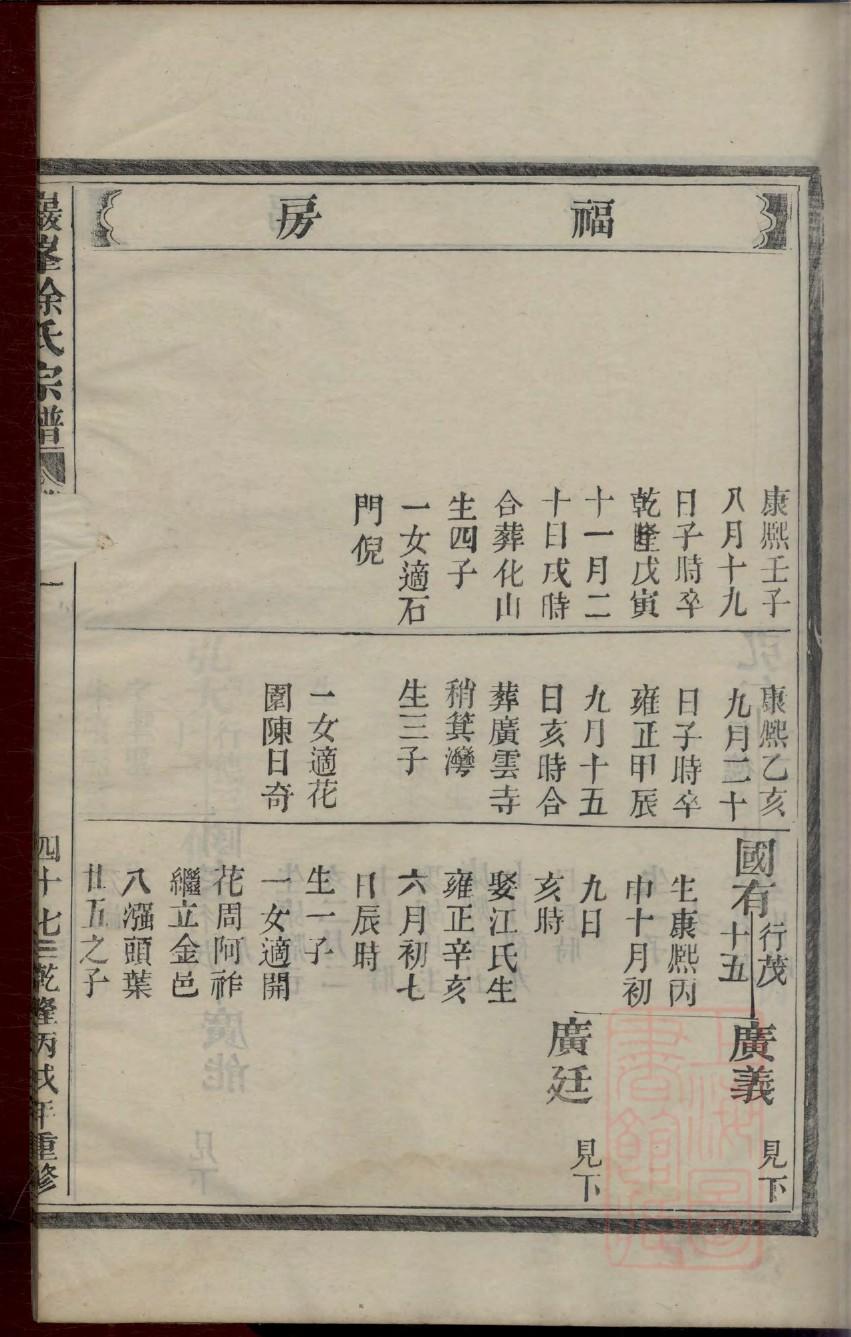 福房
康熈壬子
八月十九
日子時卒
乾隆戊寅
十一月二
十日戌時
合葬化山
生四子
一女適石
門倪
康熈乙亥
九月二十
日子時卒
雍正甲辰
九月十五
日亥時合
葬廣雲寺
稍箕灣
生三子
一女適花
園陳日奇
國有
行茂
十五
生康熈丙
申十月初
九日
亥時
娶江氏生
雍正辛亥
六月初七
日辰時
生一子
一女適開
花周阿祚
繼立金邑
八漒頭葉
廿五之子
廣義
見下
廣廷
見下
巖峯徐氏宗譜
一
四十七
乾隆丙戌年重修